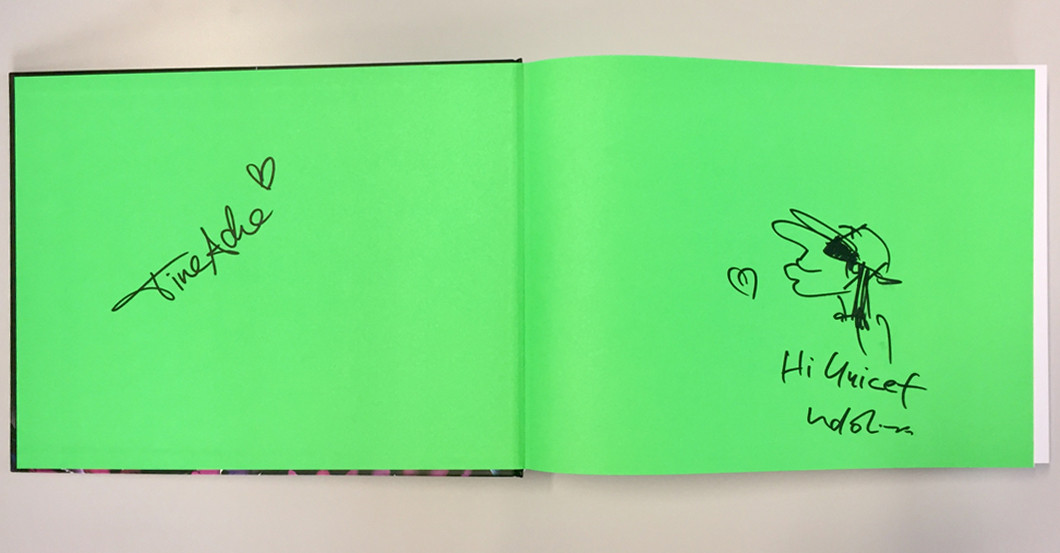 Tine Acke
Hi Unicef